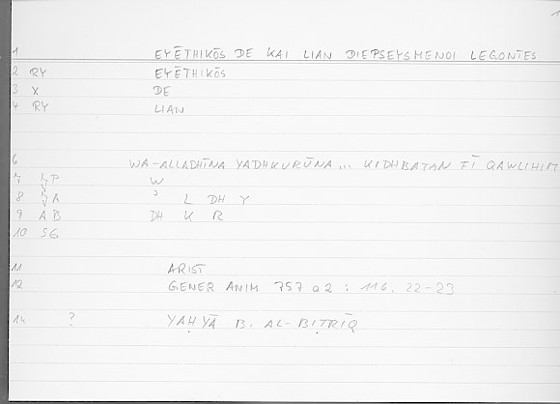 1 EYĒTHIKŌS DE KAI LIAN DIEPSEYSMENOI LEGONTES
2 RY EYĒTHIKŌS
3 X DE
4 RY LIAN
6 WA-ALLADHĪNA YADHKURŪNA... KIDHBATAN FĪ QAWLIHIM
7 P W
8 A ʾ L DH Y
9 AB DH K R
10 SG
11 ARIST
12 GENER ANIM 757 a 2 : 116, 22-23
14 ? YAḤYĀ B. AL-BIṬRĪQ